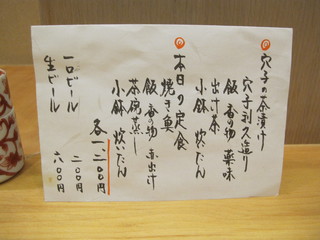 穴子の茶漬け
穴子利久造り
飯 香の物 薬味
出汁茶
小鉢 炊いたん
本日の定食
焼き魚
飯 香の物 赤出汁
茶碗蒸し
小鉢 炊いたん
各一、二〇〇円
一口ビール 二〇〇円
生ビール 六〇〇円